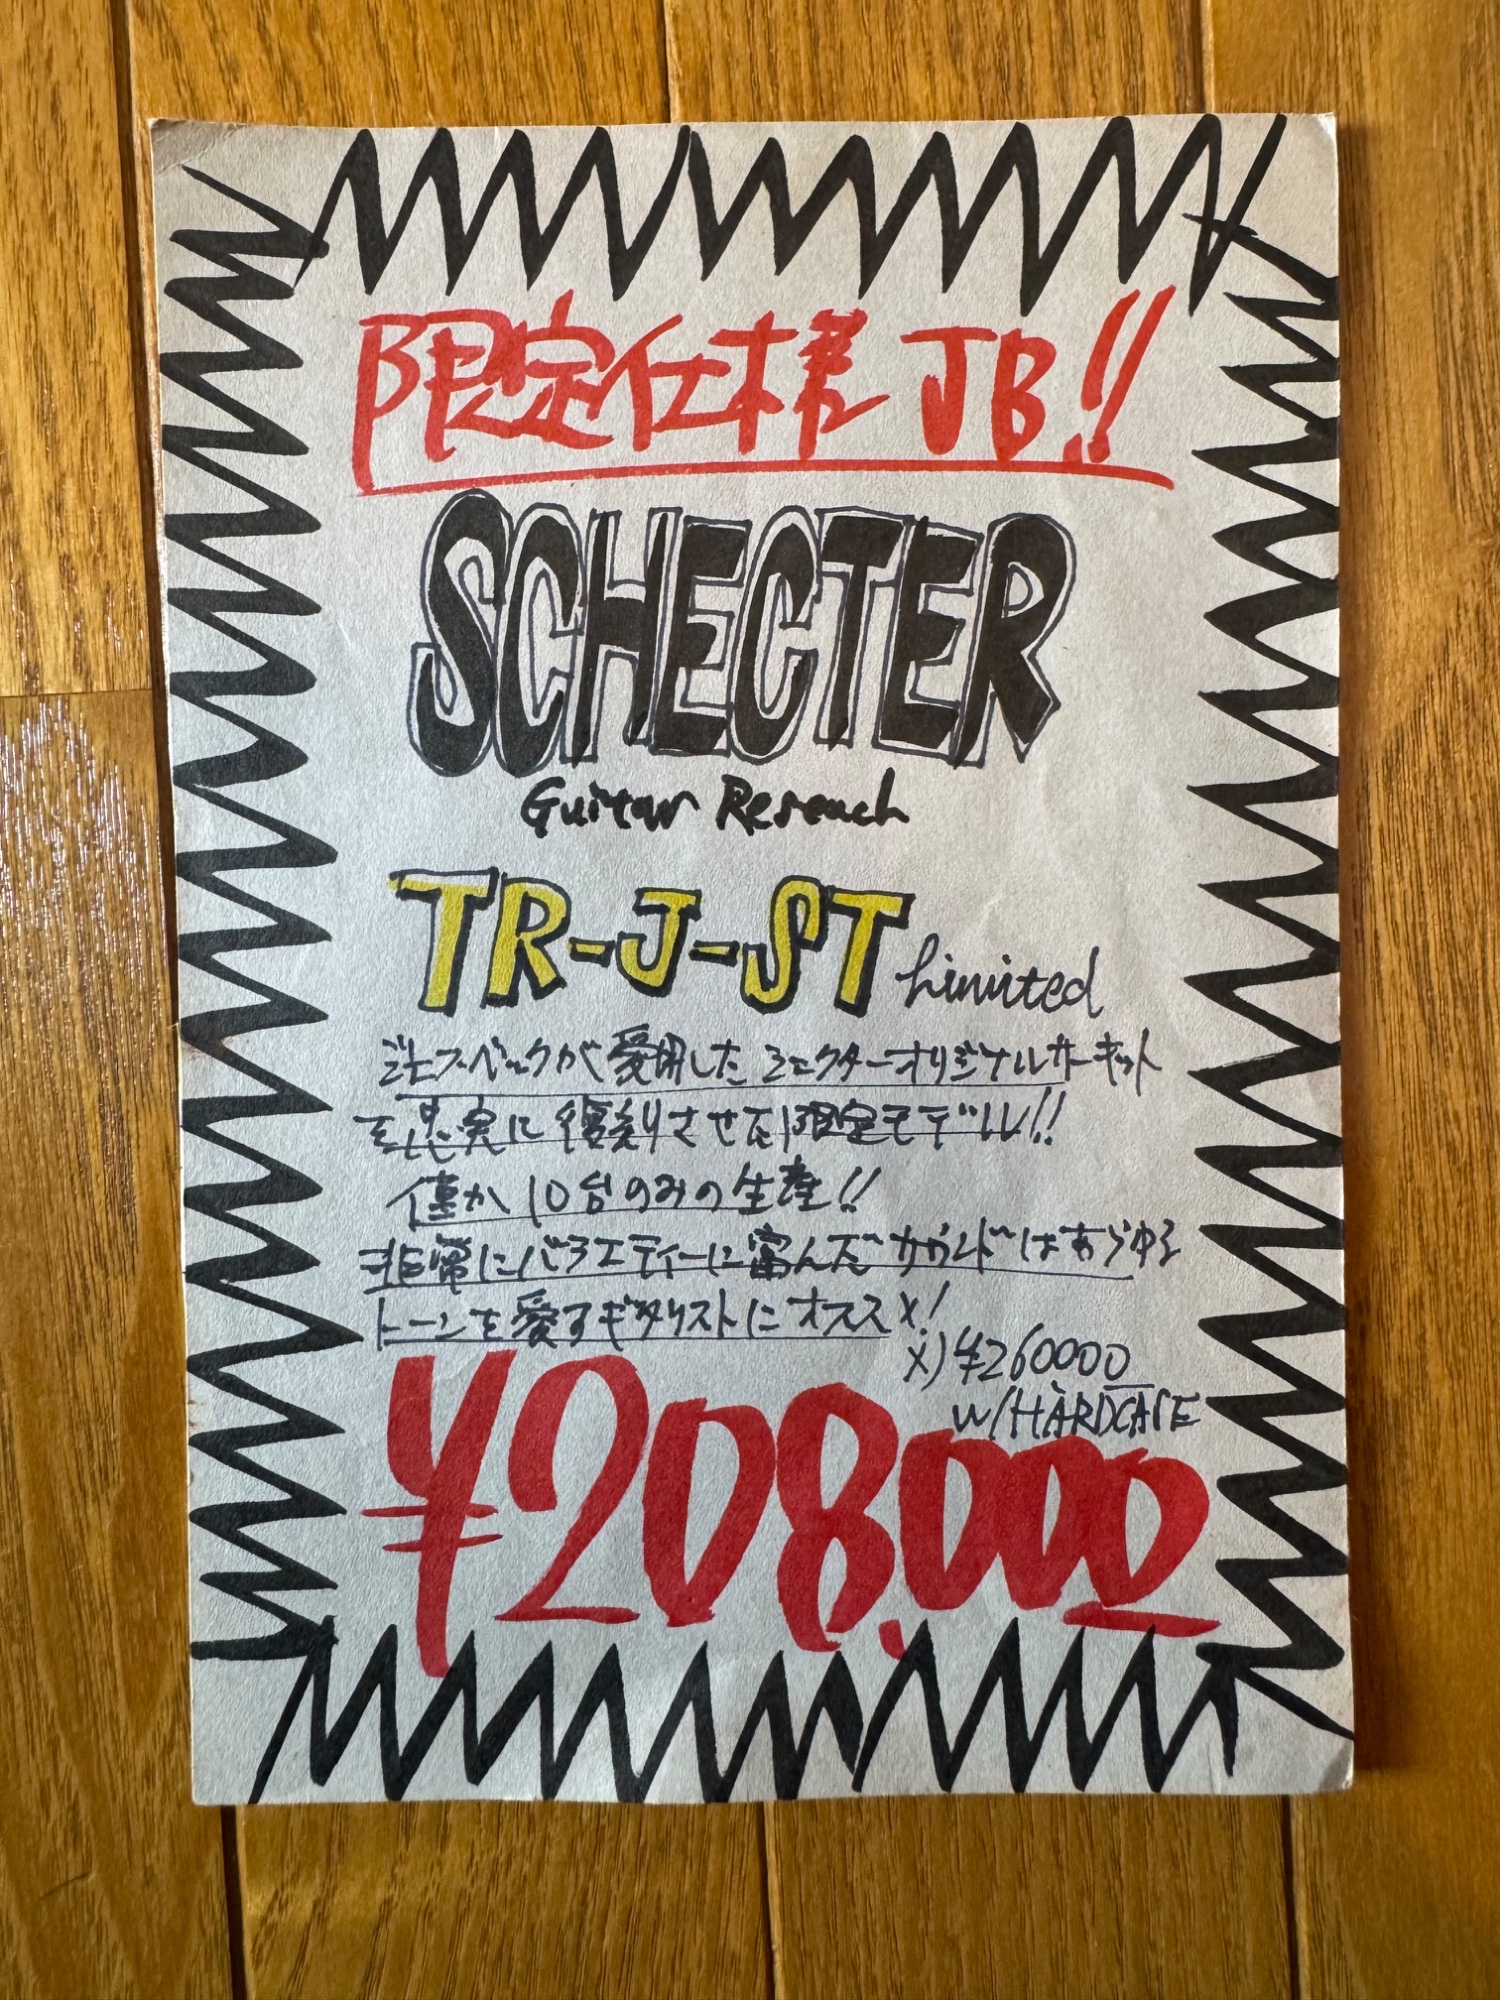 限定仕様 JB!!
SCHECTER
Guitar Reseach
TR-J-ST Limited
ジェフ・ベックが愛用したシェクターオリジナルサーキット
を忠実に復刻させた限定モデル!!
僅か10台のみの生産!!
非常にバラエティーに富んだサウンドはあらゆる
トーンを愛すギタリストにオススメ!
メ)¥260000
W/HARDCASE
¥208,000